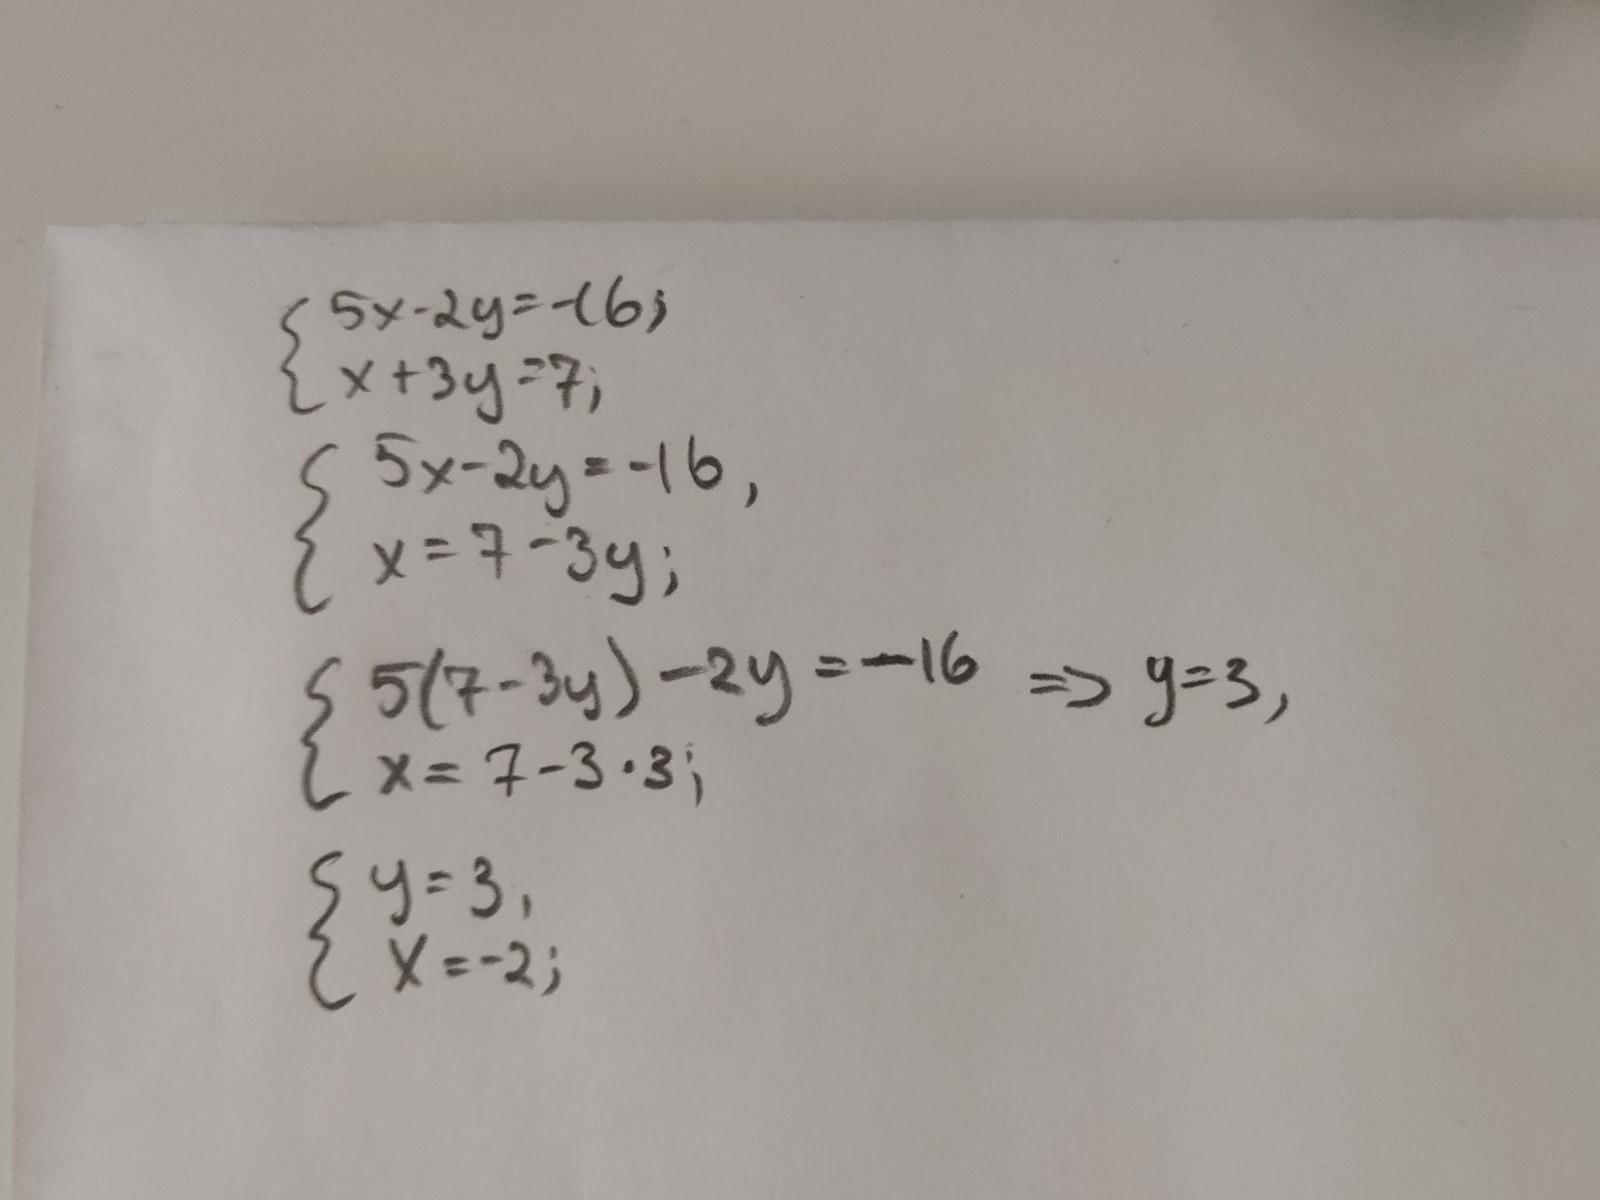 { 5x-2y=-16;
x+3y=7;
{ 5x-2y=-16,
x=7-3y;
{ 5(7-3y)-2y=-16 => y=3,
x=7-3·3;
{ y=3,
x=-2;